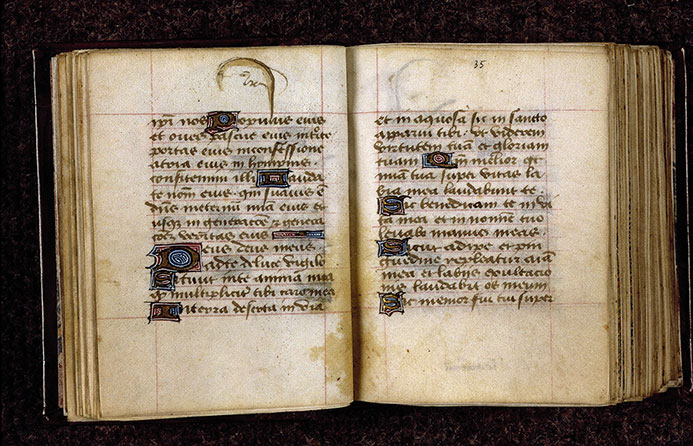 ipsi nos Populus eius
et oues pascue eius introite
portas eius in confessione
atria eius in hympnis
confitemini illi Lauda
te nomen eius qm suauis e
dns in eternu mia eius et
usq in generatioe & genera
coe veritas eius
Deus deus meus
ad te de luce vigilo
Sitiuit in te anima mea
q multipliciter tibi caro mea
In terra deserta in via
35
et in aquosa sic in sancto
apparui tibi vt viderem
virtutem tua et gloriam
tuam Qm melior est
mia tua super vitas la
bia mea laudabunt te
Sic benedicam te in vi
ta mea et in nomine tuo
leuabo manus meas
Sicut adipe et pin
guedine repleatur aia
mea et labijs exultacio
nis laudabit os meum
Sic memor fui tui super